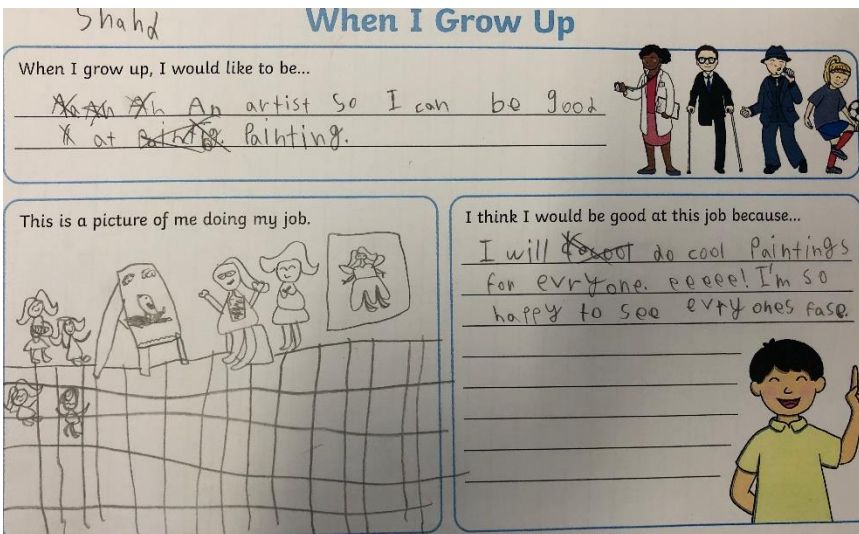 Shahd
When I Grow Up
When I grow up, I would like to be...
An artist so I can be good
at Painting.
This is a picture of me doing my job.
I think I would be good at this job because...
I will do cool Paintings
for evryone. eeeee! I'm so
happy to see evryones fase.